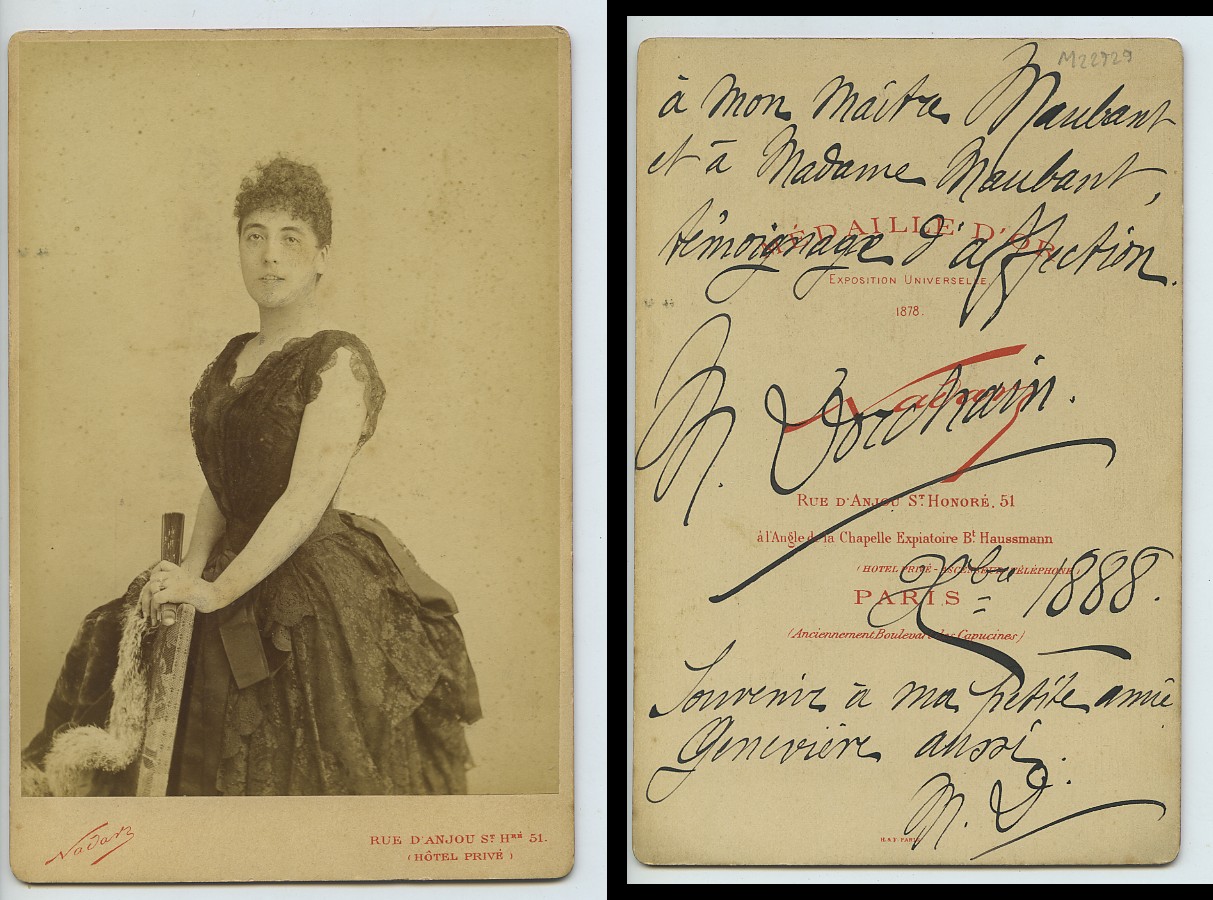 Nadar
RUE D'ANJOU S^T H^RÉ 51.
(HÔTEL PRIVÉ)
M22929
à mon maître Maubant
et à Madame Maubant,
témoignage d'affection.
MÉDAILLE D'OR
EXPOSITION UNIVERSELLE
1878.
Nadar
M. Dorchain.
RUE D'ANJOU S^T HONORÉ, 51
à l'Angle de la Chapelle Expiatoire B^t Haussmann
(HOTEL PRIVÉ - ASCENSEUR TÉLÉPHONE)
Xbre 1888.
PARIS
(Anciennement Boulevart des Capucines)
Souvenir à ma petite amie
Geneviève aussi.
M. D.